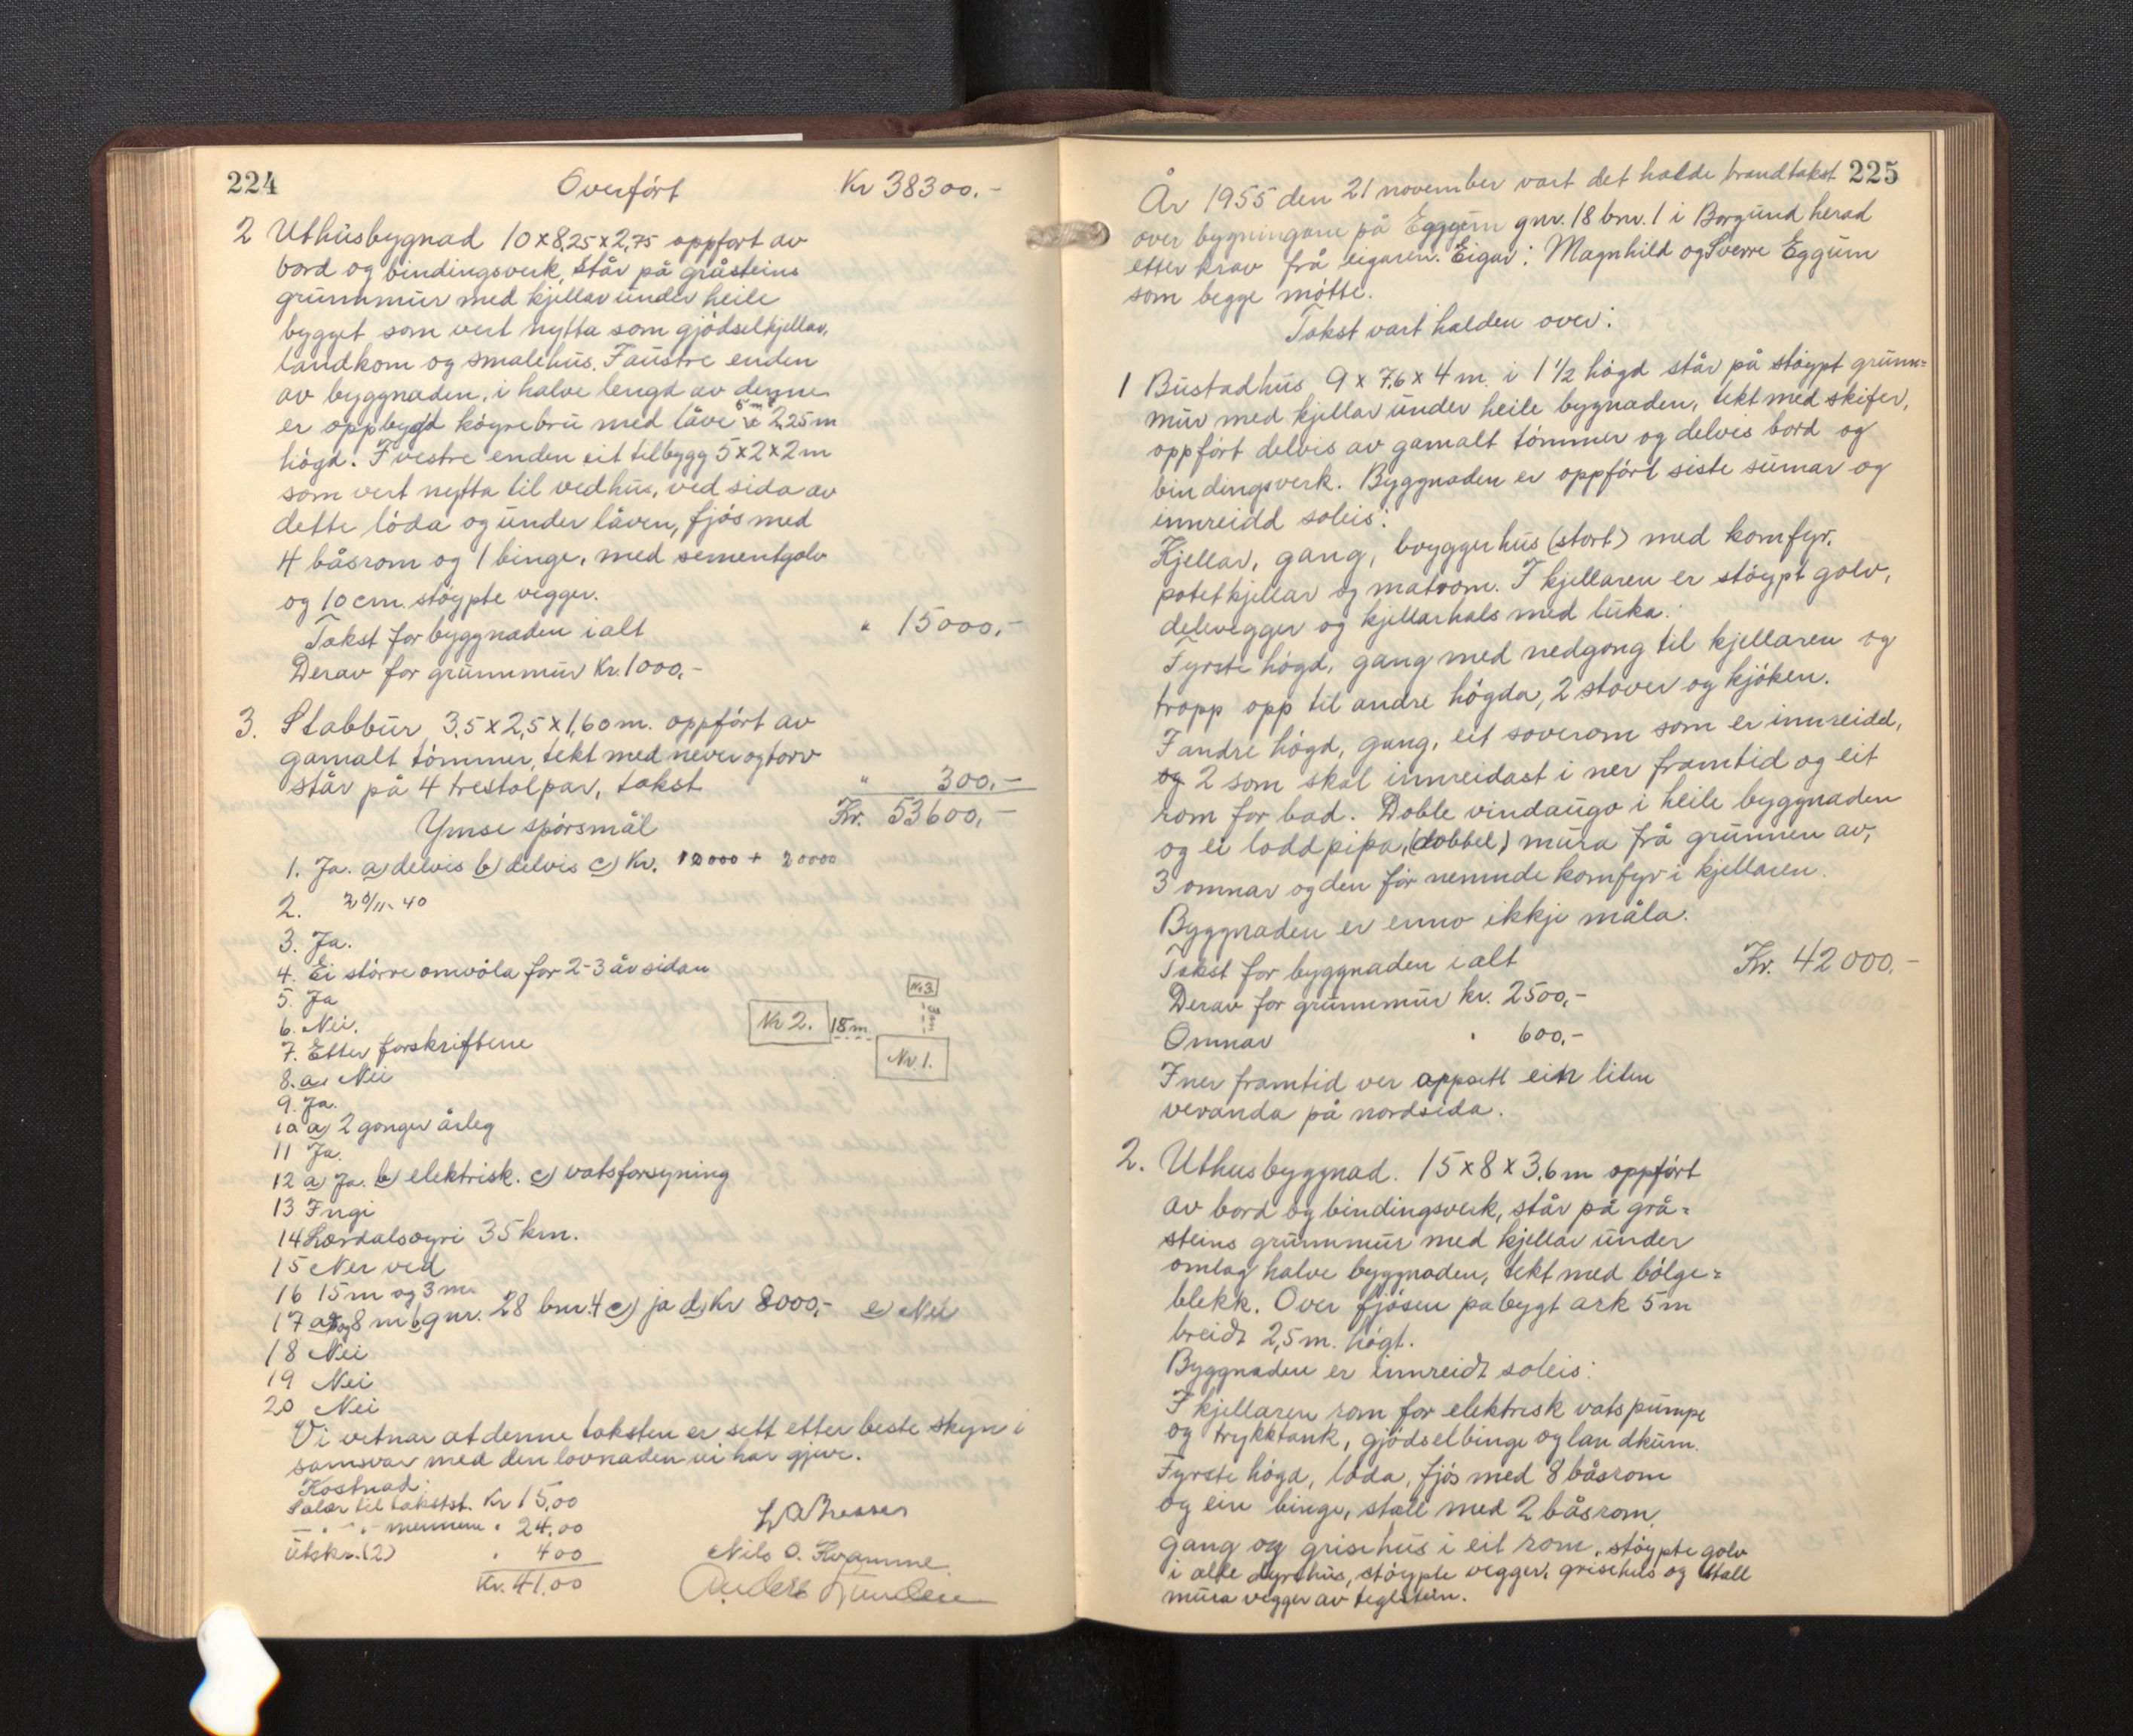 224
Overført Kr 38300.-
2 Uthusbygnad 10 x 8,25 x 2,75 oppført av
bord og bindingsverk, står på gråsteins
grunnmur med kjellar under heile
bygget som vert nytta som gjødselkjellar,
landkom og smalehus. I austre enden
av byggnaden, i halve lengd av denne
er oppbygd køyrebru med låve 2,25 m
høgd. I vestre enden eit tilbygg 5 x 2 x 2 m
som vert nytta til vedhus, ved sida av
dette löda og under låven, fjös med
4 båsrom og 1 binge, med sementgolv
og 10 cm. støypte vegger.
Takst for byggnaden ialt " 15000,-
Derav for grunnmur Kr. 1000,-
3. Stabbur 3,5 x 2,5 x 1,60 m. oppført av
gamalt tömmer, tekt med never og torv
står på 4 trestolpar, takst " 300,-
Kr. 53600,-
Ymse spörsmål
1. Ja. a) delvis b) delvis c) Kr. 12000 + 20000
2. 20/11-40
3. Ja.
4. Ei större omvöla for 2-3 år sidan
5. Ja
6. Nei.
7. Etter forskriftene
8. a. Nei
9. Ja.
10 a) 2 gonger årleg
11 Ja.
12 a) Ja. b) elektrisk. c) vatsforsyning
13 Ingi
14 Lærdalsøyri 35 km.
15 Ner ved
16 15 m og 3 m.
17 8 m b) gnr. 28 bnr. 4 c) ja d) Kr 8000,- e) Nei
18 Nei
19 Nei
20 Nei
Nr 3.
Nr 2. 15 m.
Nr. 1.
Vi vitnar at denne taksten er sett etter beste skyn i
samsvar med den lovnaden vi har gjeve.
Kostnad:
Salær til takstst. Kr 15,00
- " - mennene " 24,00
Utskr. (2) " 400
Kr. 41,00
Nils O. Kvamme
225
År 1955 den 21 november vart det halde brandtakst
over bygningane på Eggum gnr. 18 bnr. 1 i Borgund herad
etter krav frå eigaren. Eigar: Magnhild og Sverre Eggum
som begge møtte.
Takst vart halden over:
1 Bustadhus 9 x 7,6 x 4 m. i 1 1/2 högd står på stöypt grunn=
mur med kjellar under heile bygnaden, tekt med skifer,
oppført delvis av gamalt tömmer og delvis bord og
bindingsverk. Byggnaden er oppført siste sumar og
innreidd soleis:
Kjellar, gang, bryggerhus (stort) med komfyr,
potetkjellar og matrom. I kjellaren er stöypt golv,
delevegger og kjellarhals med luka.
Fyrste högd, gang med nedgong til kjellaren og
tropp opp til andre högda, 2 stover og kjöken.
I andre högd, gang, eit soverom som er innreidd,
og 2 som skal innreidast i ner framtid og eit
rom for bad. Doble vindaugo i heile byggnaden
og ei loddpipa, (dobbel) mura frå grunnen av,
3 omnar og den för nemnde komfyr i kjellaren.
Byggnaden er enno ikkje måla.
Takst for byggnaden ialt Kr. 42000,-
Derav for grunnmur kr. 2500,-
Omnar " 600,-
I ner framtid ver oppsett ein liten
veranda på nordsida.
2. Uthusbyggnad. 15 x 8 x 3,6 m oppført
av bord og bindingsverk, står på grå=
steins grunnmur med kjellar under
omlag halve byggnaden, tekt med bölge=
blekk. Over fjösen påbygt ark 5 m
breidt 2,5 m. högt.
Byggnaden er innreidt soleis:
I kjellaren rom for elektrisk vatspumpe
og trykktank, gjödselbinge og landkum.
Fyrste högd, löda, fjös med 8 båsrom
og ein binge, stall med 2 båsrom,
gang og grisehus i eit rom, stöypte golv
i alle dyrehus, stöypte vegger, grisehus og stall
mura vegger av teglstein.